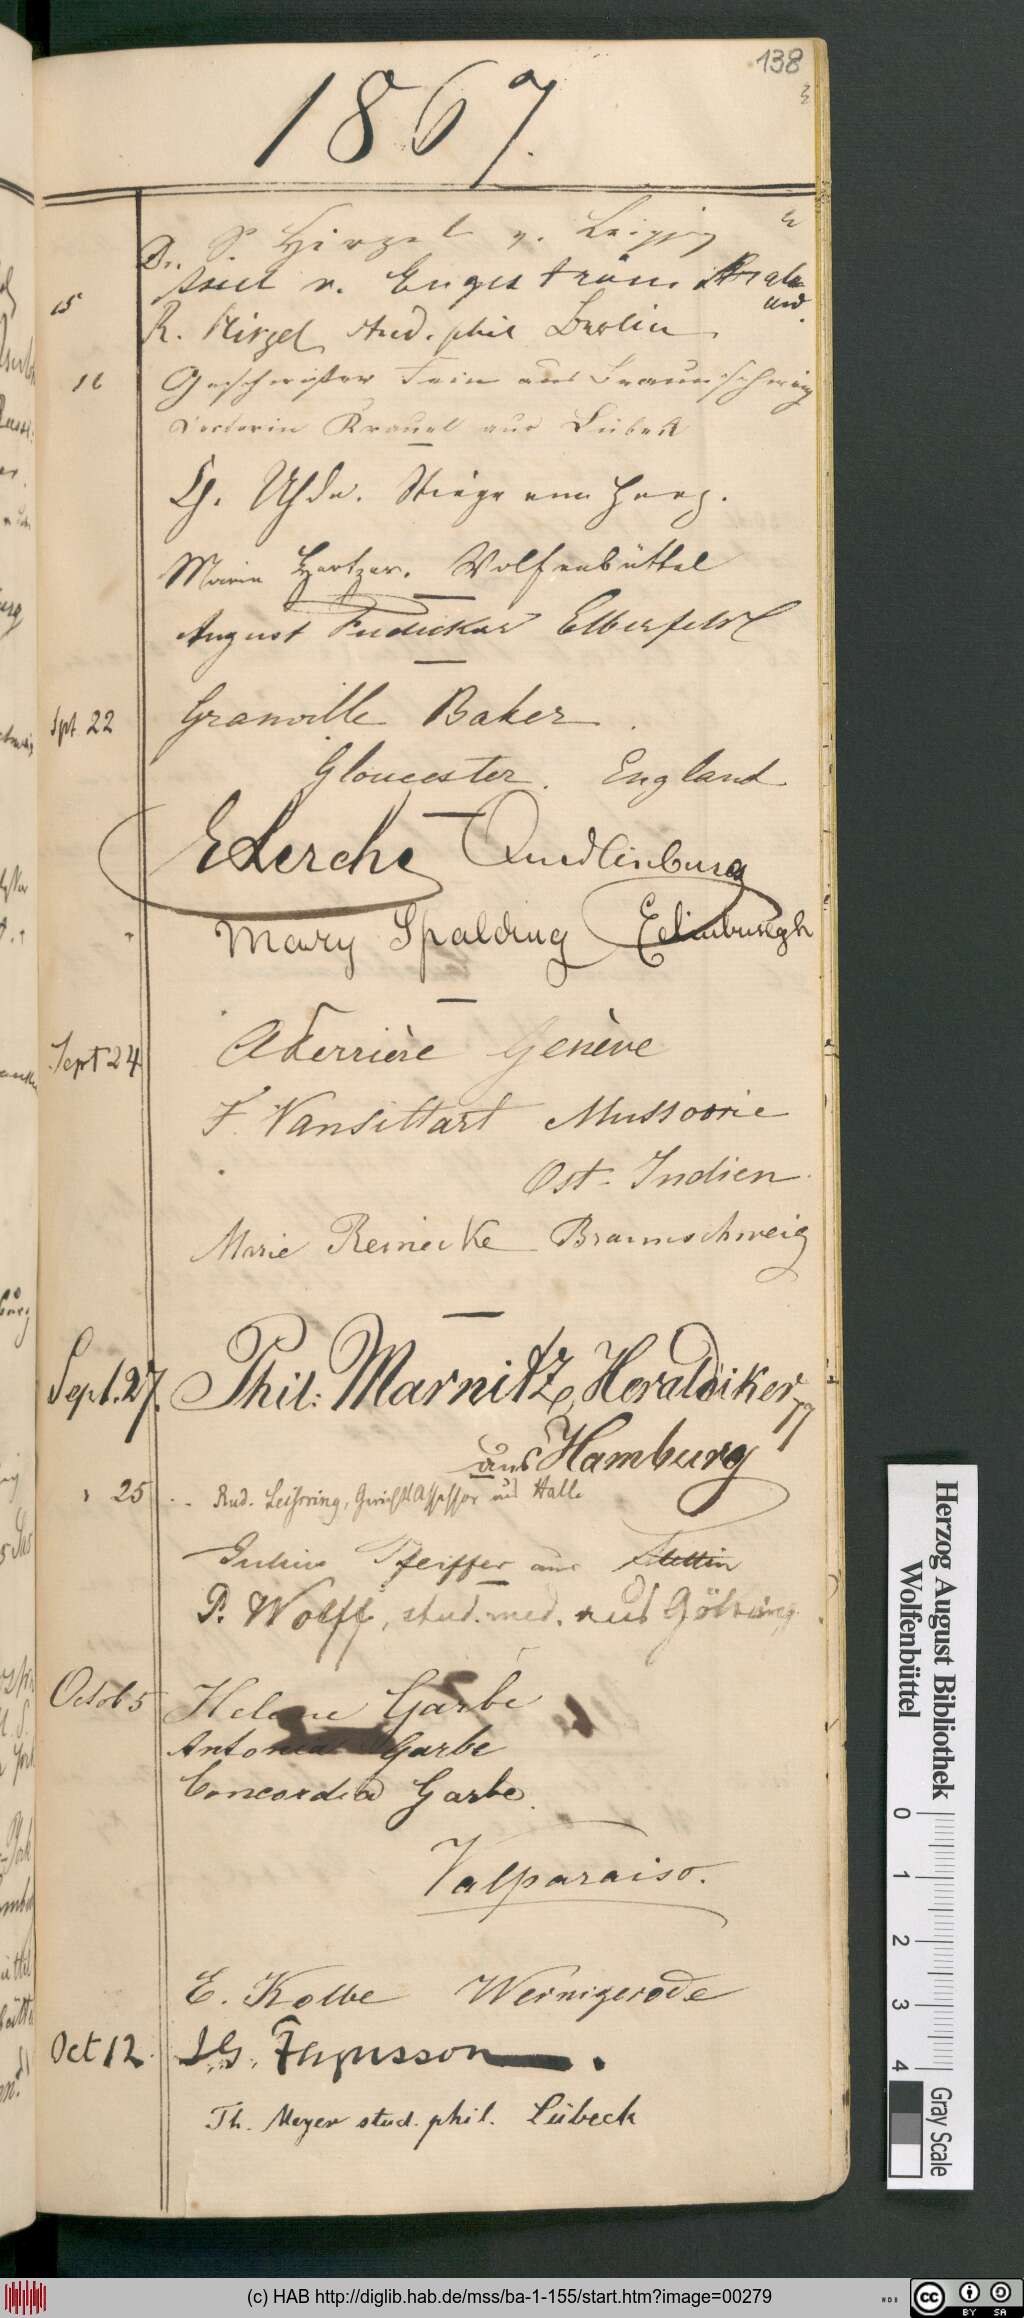 138
1867.
Dr. S Hirzel v. Leipzig
v. Engeström
15 R. Hirzel stud. phil Berlin.
16 Geschwister Fein aus Braunschweig
Doctorin Krauel aus Lübek
Th. Uhde. Stiege am Harz.
Marie Hertzer. Wolfenbüttel
August Fudickar Elberfeld
Spt 22 Granville Baker
Gloucester. England
E Lerche Quedlinburg
Mary Spalding Edinburgh
Sept 24 A Ferrière Genève
F. Vansittart Mussoorie
Ost-Indien.
Marie Reinecke Braunschweig
Sept. 27. Phil: Marnitz, Heraldiker
aus Hamburg
" 25 Rud. Leissring, Gerichts Assessor aus Halle
Julius Pfeiffer aus Stettin
P. Wolff, stud. med. aus
Octob 5 Helene Garbe
Antonia Garbe
Concordia Garbe.
Valparaiso.
E. Kolbe Wernigerode
Oct 12.
Th. Meyer stud. phil. Lübeck
Herzog August Bibliothek
Wolfenbüttel
0 1 2 3 4
Gray Scale
(c) HAB http://diglib.hab.de/mss/ba-1-155/start.htm?image=00279
cc BY SA